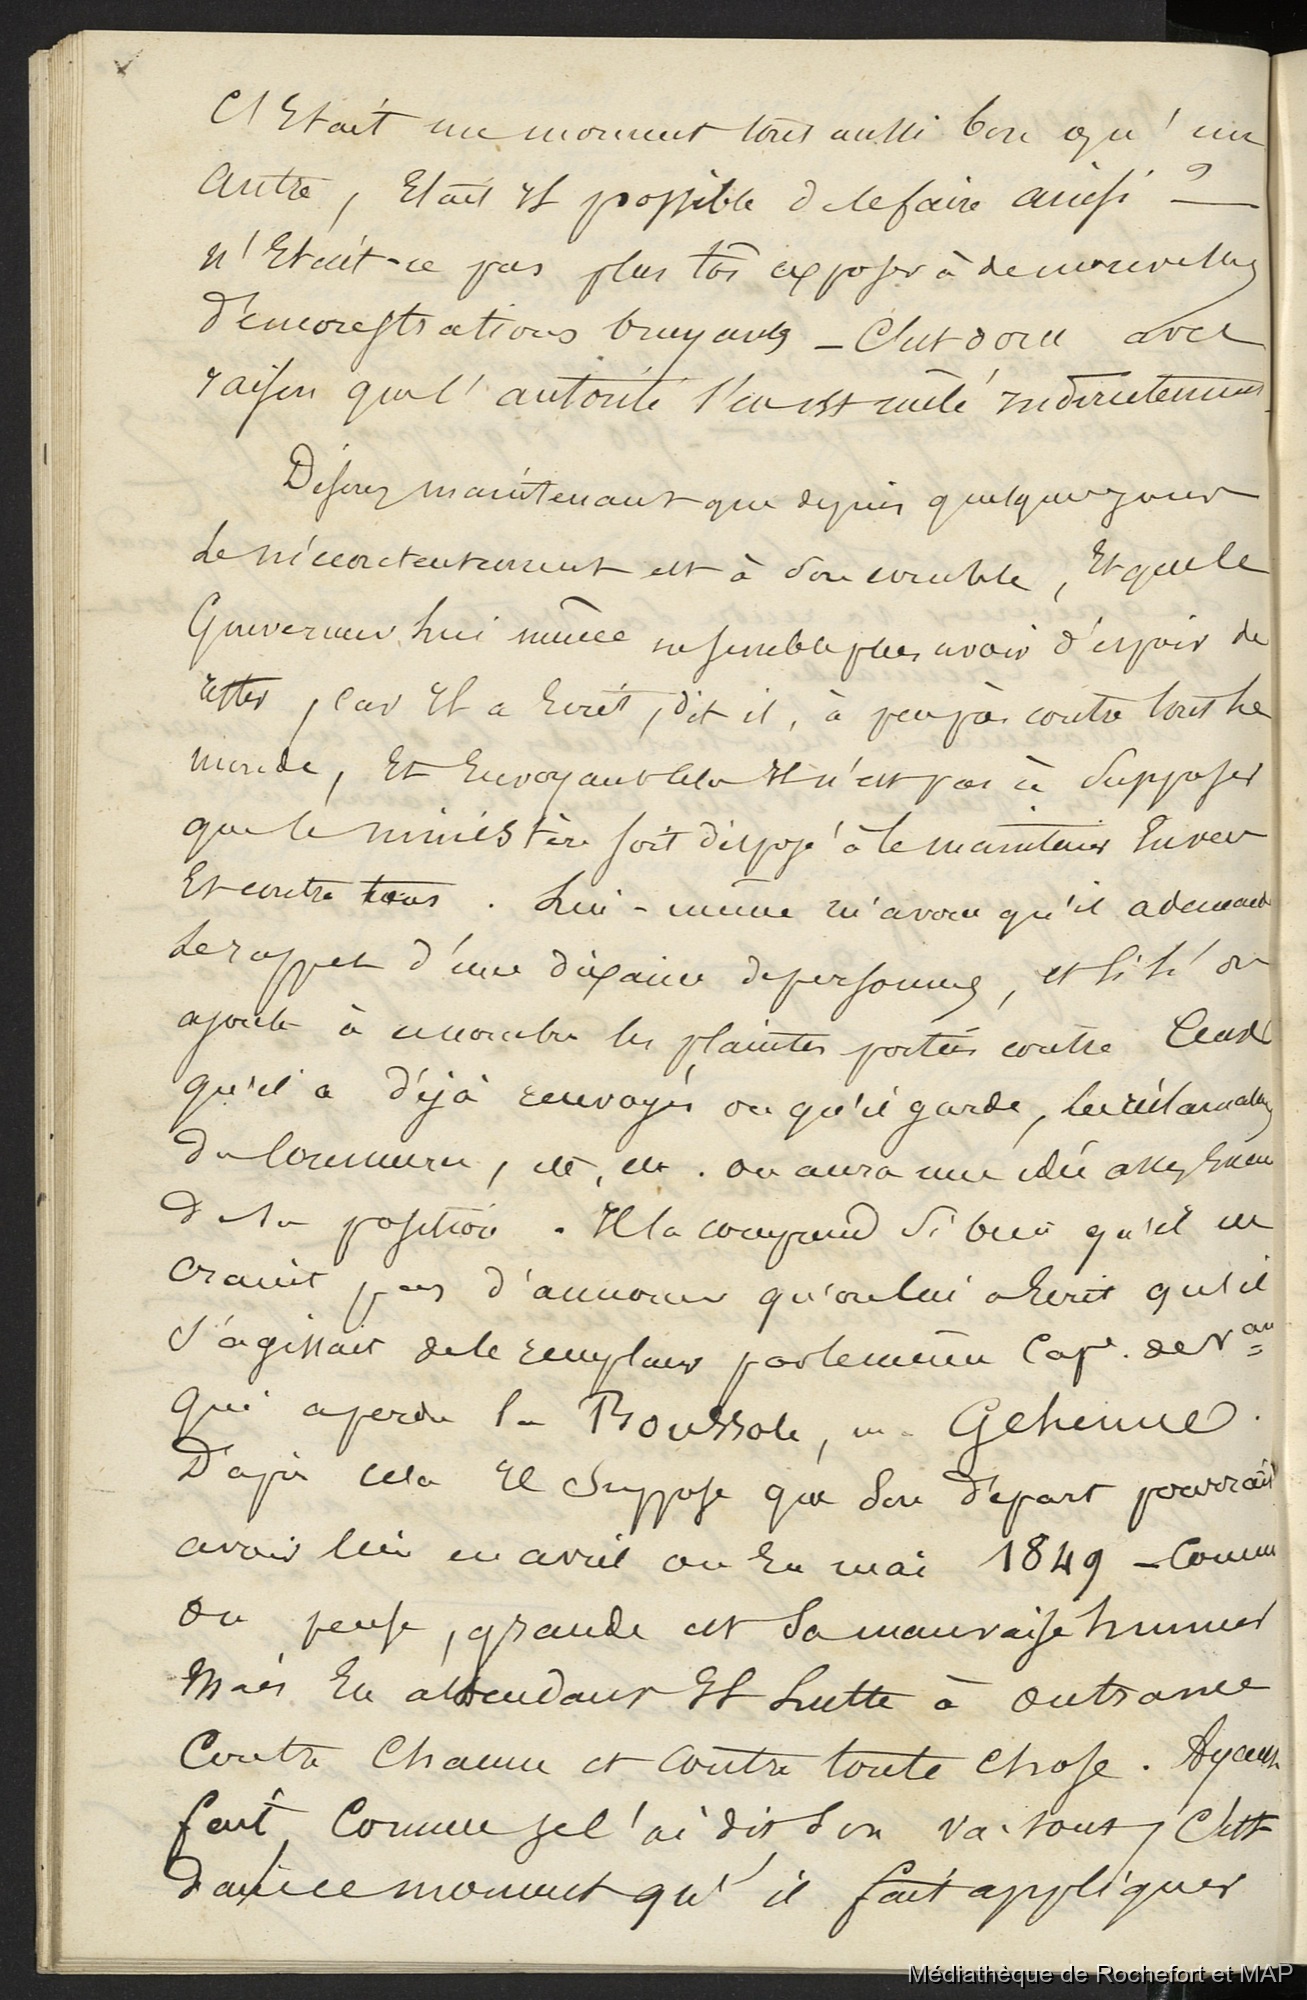 C'Etait un moment tout aussi bon qu'un
autre, Etait il possible de le faire ainsi ? —
n'Etait-ce pas plus tôt exposer à de nouvelles
démonstrations bruyantes — C'est donc avec
raison que l'autorité s'en est mêlé indirectement.
Disons maintenant que depuis quelques jours
Le mécontentement est à son comble, Et que le
Gouverneur lui même ne semble plus avoir d'espoir de
rester, car Il a Ecrit, dit il, à peu près contre tout le
monde, Et Envoyant cela Il n'est pas à Supposer
que le ministère soit disposé à le maintenir Envers
Et contre tous. Lui-même m'avoua qu'il a demandé
Le rappel d'une dixaine de personnes, et si l'on
ajoute à ce nombre les plaintes portées contre Ceux
qu'il a déjà renvoyés ou qu'il garde, les réclamations
du Commerce, etc, etc. on aura une idée assez Exacte
de sa position. Il la comprend si bien qu'il ne
craint pas d'annoncer qu'on lui a Ecrit qu'il
s'agissait de le remplacer par le même Cape. de Vau
qui a perdu la Boussole, m. Gehenne.
D'après cela Il Suppose que Son départ pourrait
avoir lieu en avril ou En mai 1849 — Comme
on pense, grande est Sa mauvaise humeur
Mais En attendant Il Lutte à outrance
Contre Chacun et Contre toute Chose. Ayant
fait, Comme je l'ai dit Son va-tout, C'est
dans ce moment qu'il fait appliquer
Médiathèque de Rochefort et MAP